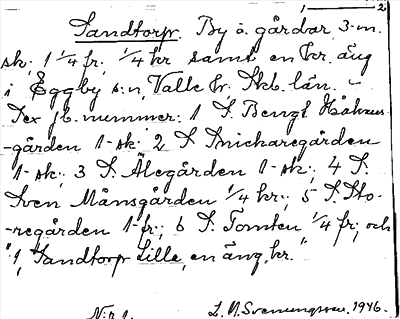 1 — 2
Sandtorp. By o. gårdar, 3 m.
sk. 1 1/4 fr. 1/4 kr samt en kr. äng
i Eggby s:n, Valle hr, Skb. län. –
Sex jb. nummer: 1 S. Bengt Håkans-
-gården 1 sk; 2 S Snickaregården
1 sk; 3 S. Ålegården 1 sk; 4 S.
Sven Månsgården 1/4 kr; 5 S. Sto-
-regården 1 fr; 6 S. Tomten 1/4 fr; och
"1, Sandtorp Lille, en äng, kr."
N:r 1. L. M. Svenungsson. 1946.